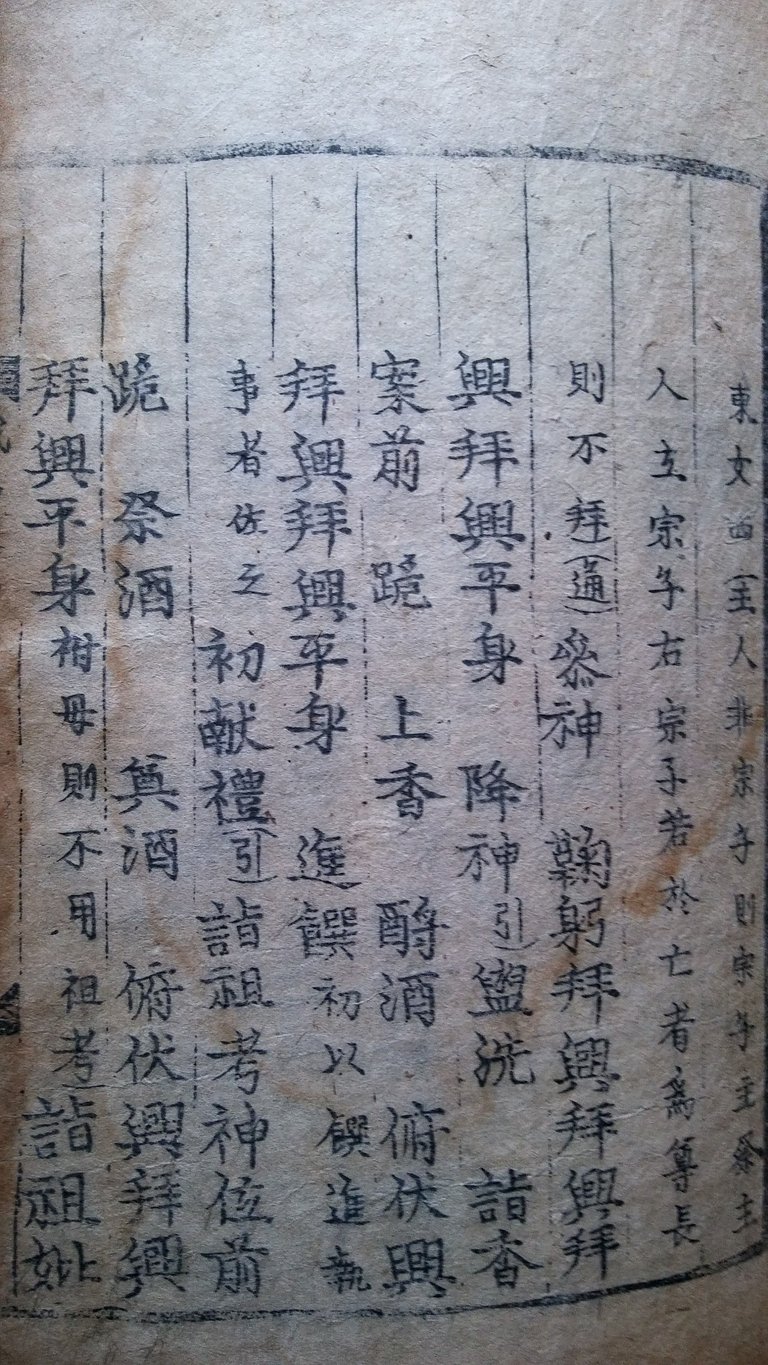 東女西(主人非宗子則宗子主祭主
人立宗子右宗子若於亡者爲尊長
則不拜(通)參神 鞠躬拜興拜興拜
興拜興平身 降神引)盥洗 詣香
案前 跪 上香 酹酒 俯伏興
拜興拜興平身 進饌初以饌進執
事者佐之 初献禮(引)詣祖考神位前
跪 祭酒 奠酒 俯伏興拜興
拜興平身祔母則不用祖考)詣祖妣